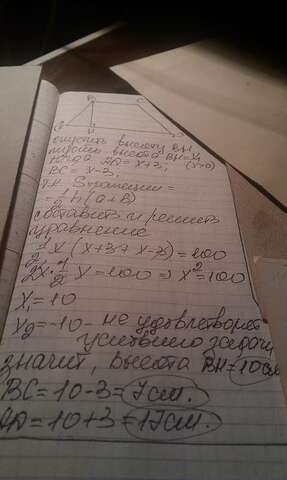 B C
A H D
опустить высоту BH
пусть высота BH = x,
тогда AD = x+3, (x>0)
BC = x-3,
т.к. S трапеции =
= 1/2 h(a+b)
составить и решить
уравнение
1/2 x (x+3+x-3) = 100
2x · 1/2 x = 100 => x² = 100
x₁ = 10
x₂ = -10 - не удовлетворяет
условию задачи
значит, высота BH = 10 см
BC = 10-3 = 7 см.
AD = 10+3 = 17 см.